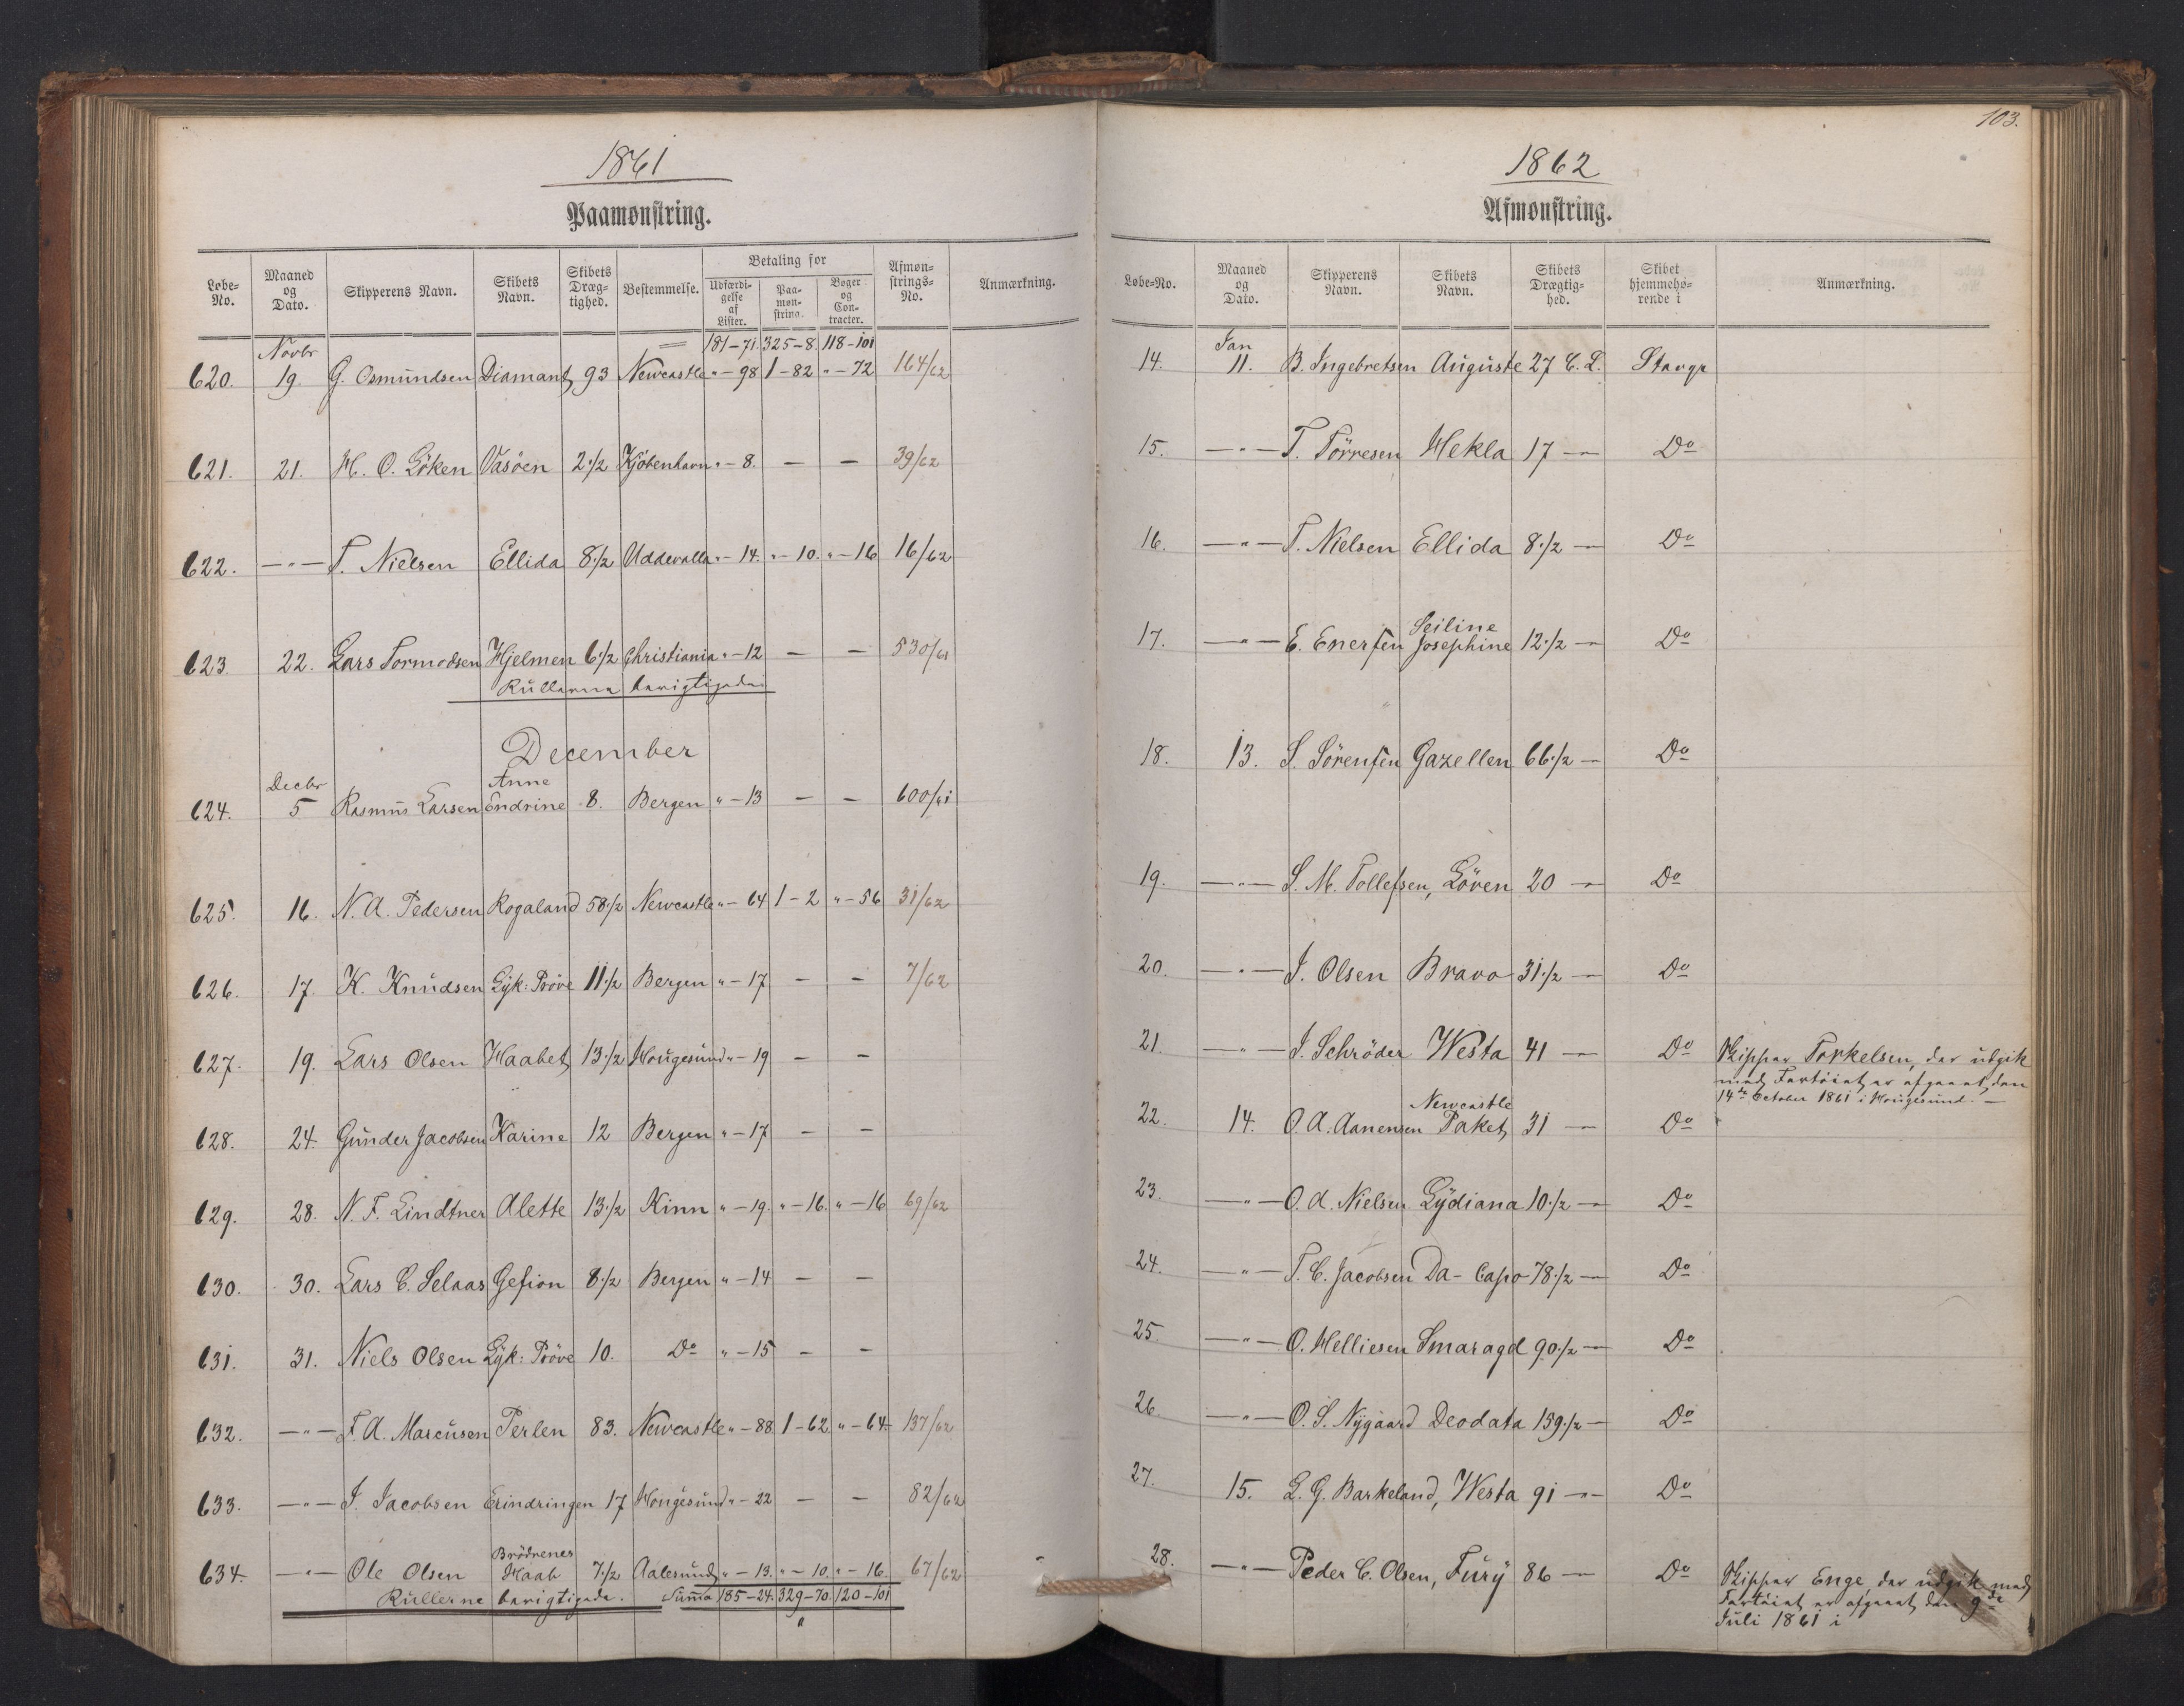 1861
Paamønstring.
Løbe-No. Maaned og Dato. Skipperens Navn. Skibets Navn. Skibets Drægtighed. Bestemmelse. Betaling for Udfærdigelse af Lister. Paamønstring. Bøger og Contracter. Afmønstrings-No. Anmærkning.
181-71. 325-8. 118-101
Novbr
620. 19. G. Osmundsen Diamant 93 Newcastle " - 98 1 - 82 " - 72 164/62
621. 21. H. O. Löken Vasöen 2 1/2 Kjöbenhavn " - 8. — — 39/62
622. —"— T. Nielsen Ellida 8 1/2 Uddevalla " - 14. " - 10. " - 16 16/62
623 22. Lars Tormodsen Hjelmen 6 1/2 Christiania " - 12 — — 530/61
Rullerne berigtigede
December
Decbr Anne
624. 5 Rasmus Larsen Endrine 8. Bergen " - 13 — — 600/61
625. 16. N. A. Pedersen Rogaland 58 1/2 Newcastle " - 64 1 - 2 " - 56 31/62
626. 17. K. Knudsen Lyk: Pröve 11 1/2 Bergen " - 17 — — 7/62
627. 19. Lars Olsen Haabet 13 1/2 Hougesund " - 19 — —
628. 24. Gunder Jacobsen Karine 12 Bergen " - 17 — —
629. 28. N. F. Lindtner Alette 13 1/2 Kinn " - 19. " - 16. " - 16 69/62
630. 30. Lars C. Selaas Gefion 8 1/2 Bergen " - 14 — —
631. 31. Niels Olsen Lyk: Pröve 10. Do " - 15 — —
632. —"— F. A. Marcusen Perlen 83. Newcastle " - 88 1 - 62 " - 64. 137/62
633. —"— J. Jacobsen Erindringen 17 Hougesund " - 22 — — 82/62
Brödrenes
634. —"— Ole Olsen Haab 7 1/2 Aalesund " - 13. " - 10. " - 16. 67/62
Rullerne berigtigede. Summa 185-24. 329-70. 120-101
103.
1862
Afmønstring.
Løbe-No. Maaned og Dato. Skipperens Navn. Skibets Navn. Skibets Drægtighed. Skibet hjemmehørende i Anmærkning.
Jan
14. 11. B. Ingebretsen Auguste 27 C. L. Stavgr
15. —"— T. Törresen Hekla 17 — Do
16. —"— T. Nielsen Ellida 8 1/2 — Do
Seiline
17. —"— E. Enersen Josephine 12 1/2 — Do
18. 13. S. Sörensen Gazellen 66 1/2 — Do
19. —"— S. M. Tollefsen, Löven 20 — Do
20. —"— J. Olsen Bravo 31 1/2 — Do
21. —"— J. Schröder Westa 41 — Do Skipper Torkelsen, der udgik
med Fartöiet er afgaaet den
14de October 1861 i Hougesund. —
Newcastle
22. 14. O. A. Aanensen Paket 31 — Do
23. —"— O. A. Nielsen Lydiana 10 1/2 — Do
24. —"— T. C. Jacobsen Da-Capo 78 1/2 — Do
25 —"— O. Helliesen Smaragd 90 1/2 — Do
26. —"— O. S. Nygaard Deodata 159 1/2 — Do
27. 15. L. G. Barkeland, Westa 91 —"— Do
28. —"— Peder C. Olsen, Fury 86 — Do Skipper Enge, der udgik med
Fartöiet er afgaaet den 9de
Juli 1861 i